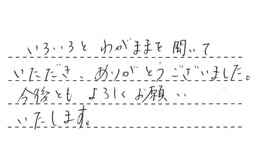 いろいろと わがままを 聞いて
いただき、ありがとうございました。
今後とも よろしくお願い
いたします。